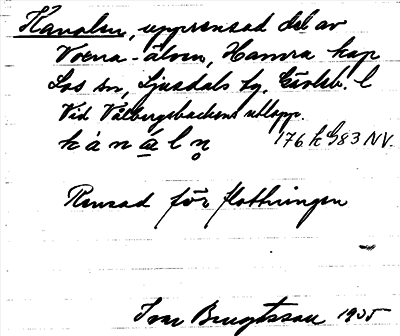 Kanalen, upprensad del av
Voxna-älven, Hamra kap
Los sn, Ljusdals tg. Gävleb. l
Vid Vålbergsbäckens utlopp.
k à n á l n̥ 176 h 983 NV.
Rensad för flottningen
Ivar Bengtsson 1935